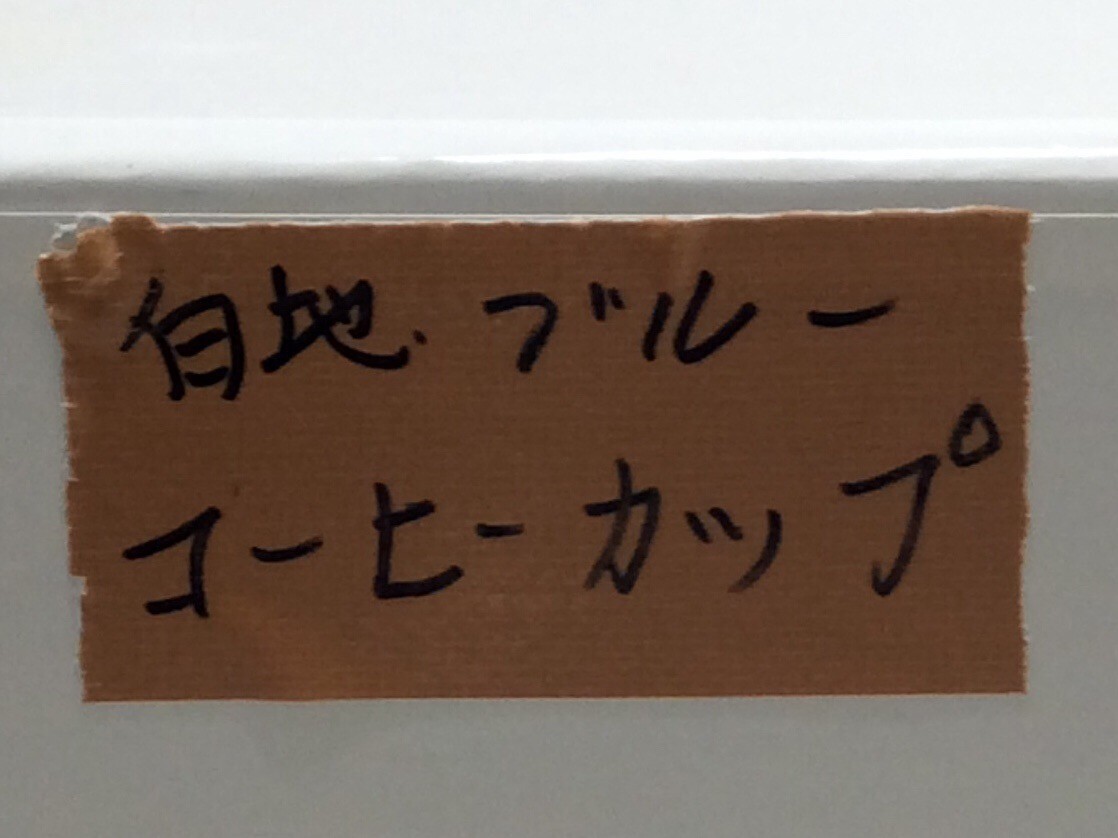 白地.ブルー
コーヒーカップ